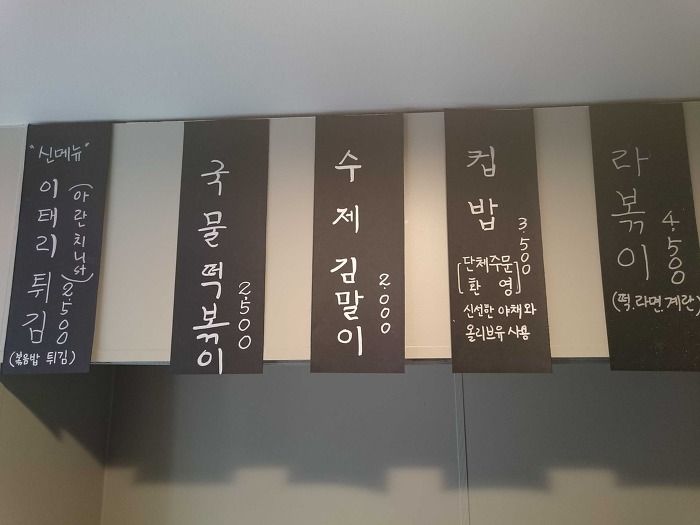 "신메뉴"
이태리 튀김
(아란치니st)
2500
(볶음밥 튀김)
국물떡볶이
2,500
수제김말이
2000
컵밥
3,500
[단체주문
환영]
신선한 야채와
올리브유 사용
라볶이
4,500
(떡.라면.계란)